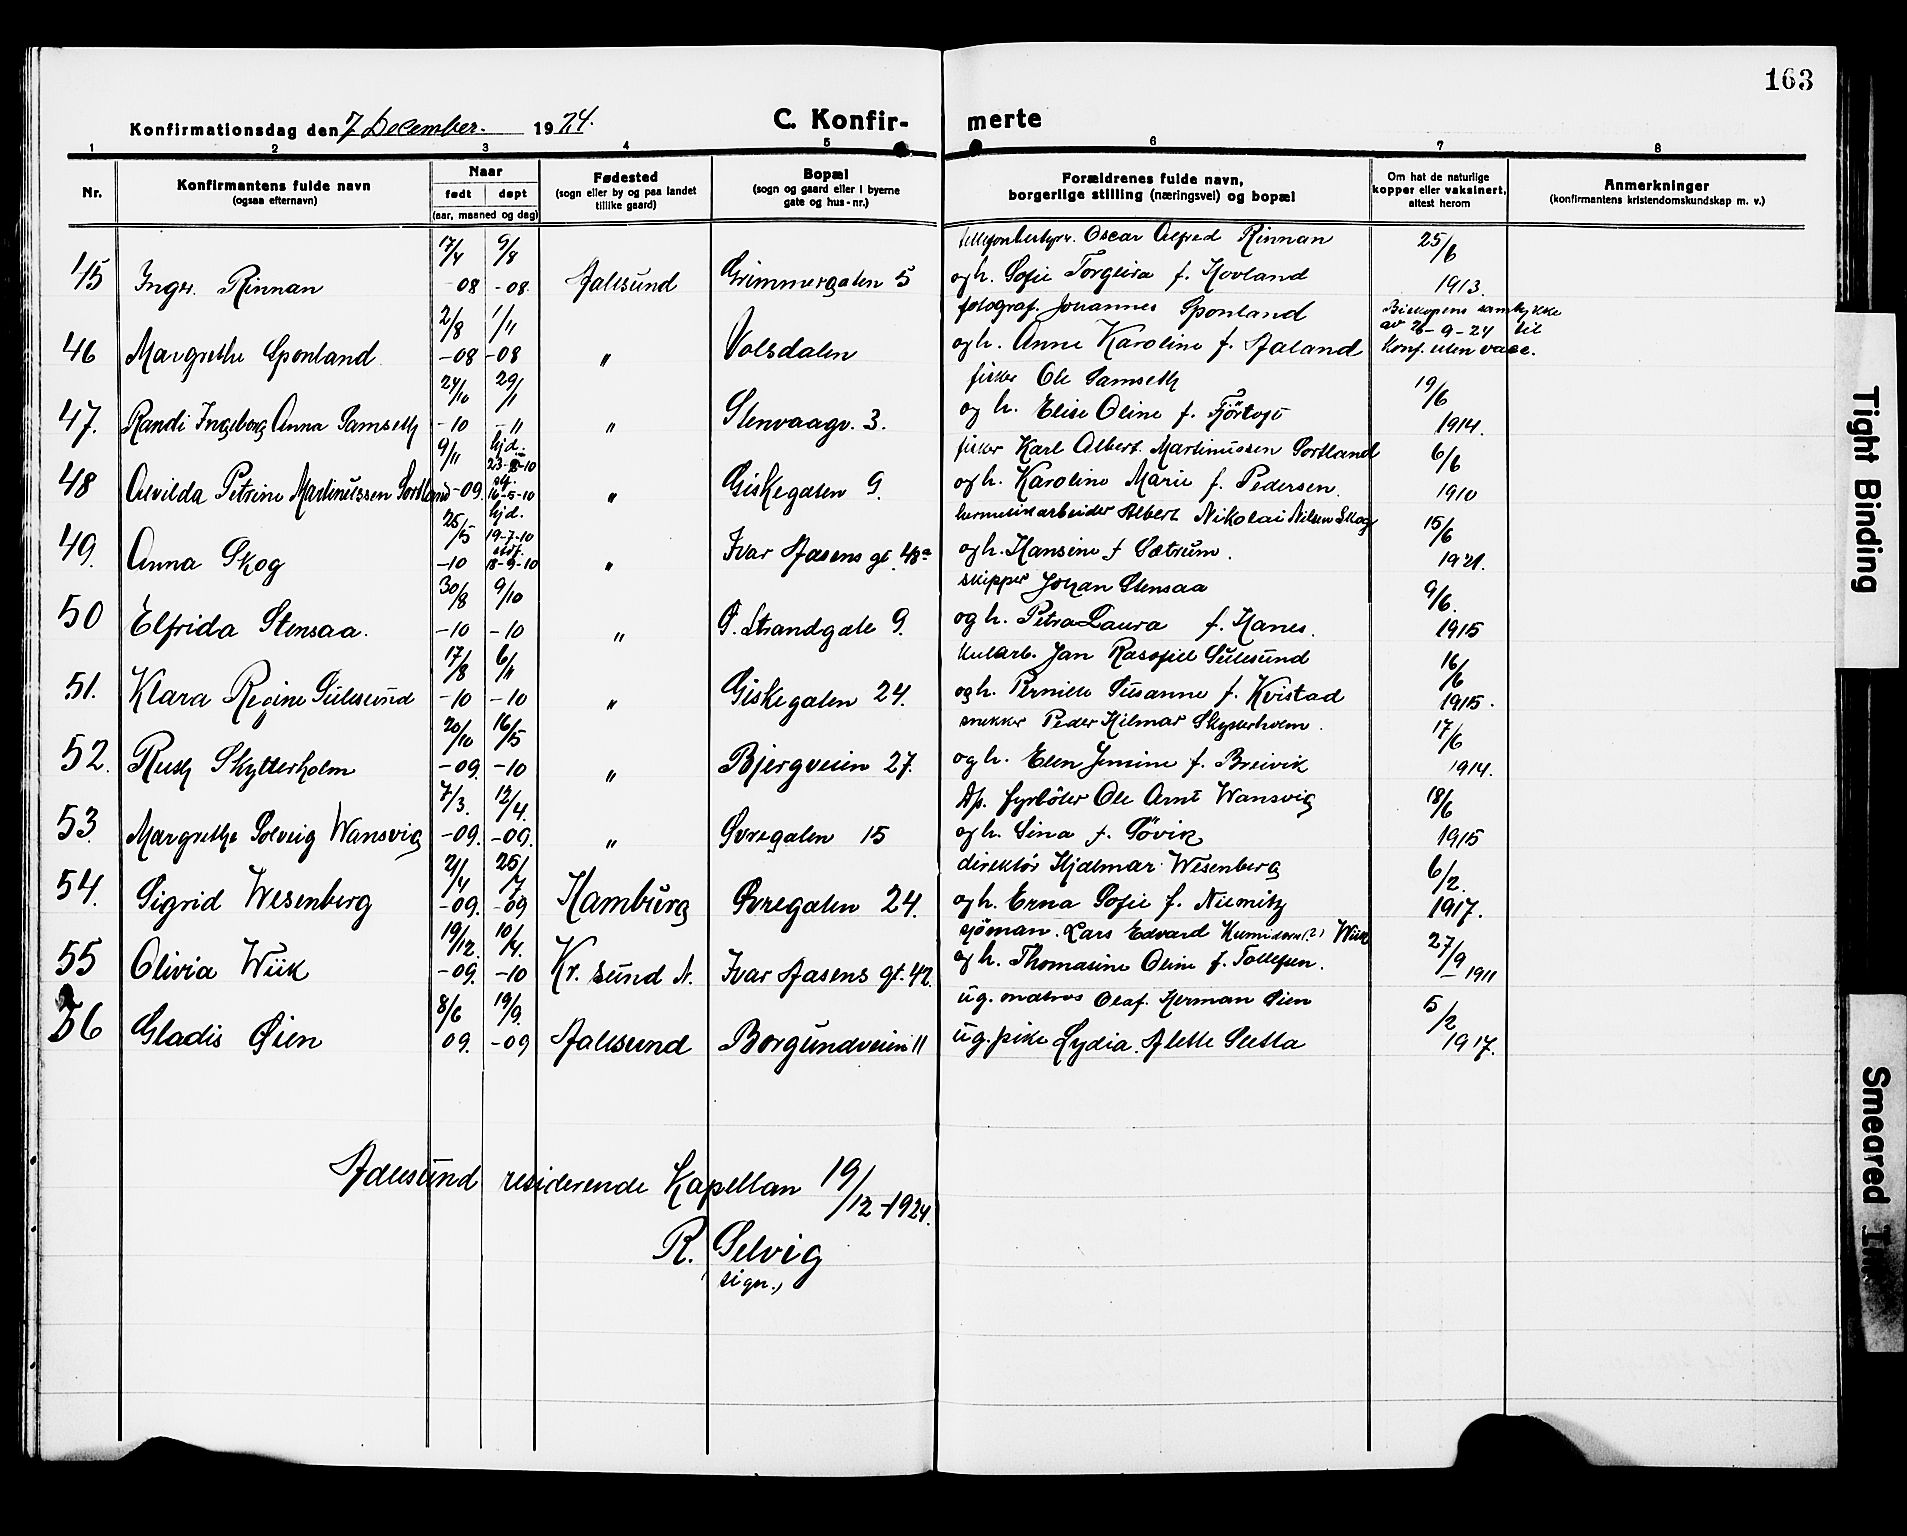 163
Konfirmationsdag den 7 December. 1924.
C. Konfir- merte
1 2 3 4 5 6 7 8
Nr.
Konfirmantens fulde navn
(ogsaa efternavn)
Naar
født døpt
(aar, maaned og dag)
Fødested
(sogn eller by og paa landet
tillike gaard)
Bopæl
(sogn og gaard eller i byerne
gate og hus-nr.)
Forældrenes fulde navn,
borgerlige stilling (næringsvei) og bopæl
Om hat de naturlige
kopper eller vaksinert,
attest herom
Anmerkninger
(konfirmantens kristendomskundskap m. v.)
17/4 9/8 Oscar Alfred Rinnan 25/6
45 Inger Rinnan -08 -08. Aalesund Grimmergaten 5 og h. Sofie Torgeira f. Hovland 1913.
2/8 1/11 fotograf. Johannes Sponland Biskopens samtykke
av 26-9-24 til
46 Margrethe Sponland -08 -08 " Volsdalen og h. Anne Karoline f. Aaland Konf. uten vacc.
24/10 29/1 fisker Ole Samseth 19/6
47. Randi Ingeborg Anna Samseth -10 -11 " Stenvaagv. 3. og h. Elise Oline f. Fjörtoft 1914.
9/11 hjd. 23-2-10 fisker Karl Albert Martinussen Sortland 6/6
48 Alvilda Petrine Martinussen Sortland -09. 16-5-10 " Giskegaten 9. og h. Karoline Marie f. Pedersen. 1910
25/5 hjd. 19-7-10 hermetikarbeider Albert Nikolai Nilsen Skog 15/6
49. Anna Skog -10 18-9-10 " Ivar Aasens gt. 48a og h. Hansine f. Sætrum. 1921.
30/8 9/10 skipper Johan Stensaa 9/6.
50 Elfrida Stensaa. -10 -10 " Ø. Strandgate 9. og h. Petra Laura f. Hanes. 1915
17/8 6/11 kularb. Jan Rasofiel Sulesund 16/6
51. Klara Regine Sulesund -10 -10 " Giskegaten 24. og h. Pernille Susanne f. Kvistad 1915.
20/10 16/5 snekker Peder Hilmar Skytterholm. 17/6
52. Ruth Skytterholm -09. -10 " Bjergveien 27. og h. Elen Jensine f. Breivik 1914.
7/3. 12/4. Dp. fyrböter Ole Arnt Wansvig 18/6
53. Margrethe Solveig Wansvig -09. -09. " Svregaten 15 og h. Sina f. Søvik 1915
2/4 25/7 direktör Hjalmar Wesenberg 6/2.
54. Sigrid Wesenberg -09. -09 Hamburg Øvregaten 24. og h. Erna Sofie f. Niemitz 1917.
19/12. 10/4. sjöman. Lars Edvard (?) Wiik 27/9
55 Olivia Wiik -09. -10 Kr. sund N. Ivar Aasens gt. 42. og h. Thomasine Oline f. Tollefsen. 1911
8/6 19/9. ug. matros Olaf Herman Øien 5/2
56 Gladis Øien 09. -09 Aalesund Borgundveien 11 ug. pike Lydia Alette Sletta 1917.
Aalesund residerende Kapellan 19/12-1924.
R. Selvig
(sign.)
Tight Binding
Smeared Ink